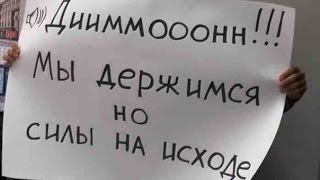 Дииммооонн!!!
Мы держимся
но
силы на исходе